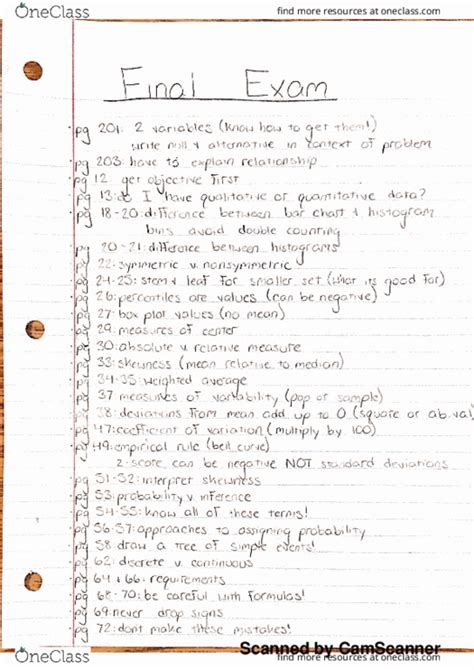 OneClass
find more resources at oneclass.com
Final Exam
pg 201: 2 variables (know how to get them!)
write null & alternative in context of problem
pg 203: have to explain relationship
pg 12 get objective first
pg 13: do I have qualitative or quantitative data?
pg 18-20: difference between bar chart & histogram
bins avoid double counting
pg 20-21: difference between histograms
pg 22: symmetric v. nonsymmetric
pg 24-25: stem & leaf for smaller set (what its good for)
pg 26: percentiles are values (can be negative)
pg 27: box plot values (no mean)
pg 29: measures of center
pg 30: absolute v. relative measure
pg 33: skewness (mean relative to median)
pg 34-35: weighted average
pg 37 measures of variability (pop or sample)
pg 38: deviations from mean add up to 0 (square or ab.val)
pg 47: coefficient of variation (multiply by 100)
pg 49: empirical rule (bell curve)
z-score can be negative NOT standard deviations
pg 51-52: interpret skewness
pg 53: probability v. inference
pg 54-55: know all of these terms!
pg 56-57: approaches to assigning probability
pg 58 draw a tree of simple events!
pg 62: discrete v. continuous
pg 64 & 66: requirements
pg 68-70: be careful with formulas!
pg 69: never drop signs
pg 72: dont make these mistakes!
Scanned by CamScanner
OneClass
find more resources at oneclass.com